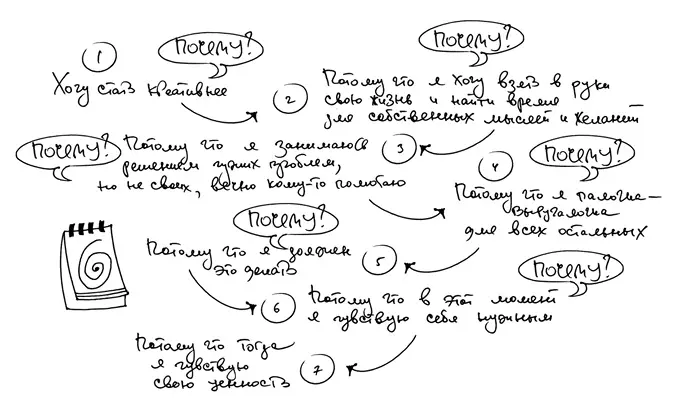 1
Почему?
Хочу стать креативнее
Почему?
2
Потому что я хочу взять в руки
свою жизнь и найти время
для собственных мыслей и желаний
Почему?
3
Потому что я занимаюсь
решением чужих проблем,
но не своих, вечно кому-то помогаю
Почему?
4
Потому что я палочка-
выручалочка
для всех остальных
Почему?
5
Потому что я должен
это делать
Почему?
6
Потому что в этот момент
я чувствую себя нужным
7
Потому что тогда
я чувствую
свою ценность